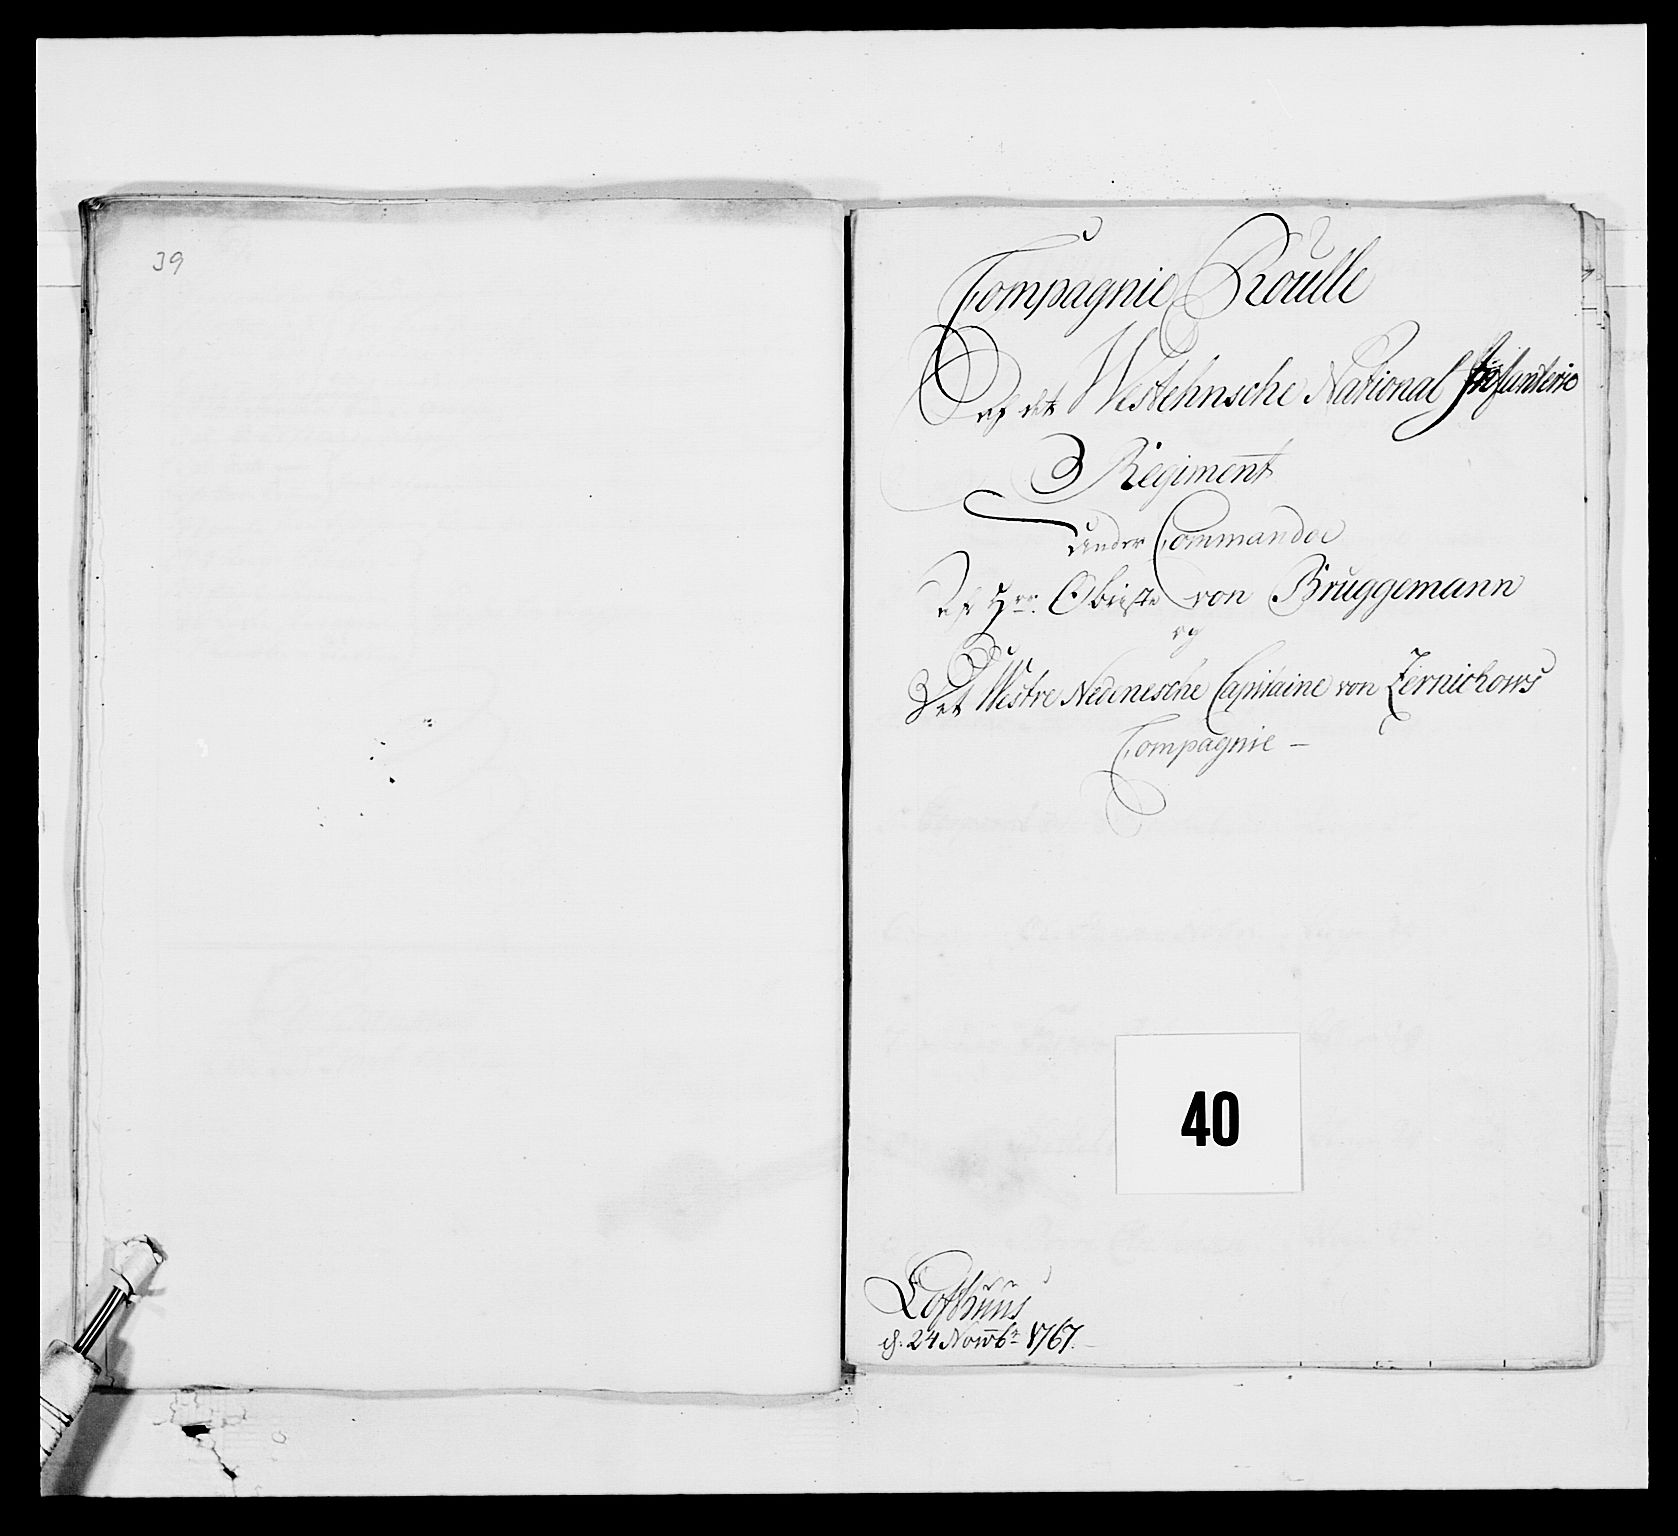 39
Compagnie Roulle
Af det Westlehnsche National Infanterie
Regiment
under Commando
Af Hrr. Obriste von Bruggemann
og
Det Westre Nedenesche Capitaine von Zernichows
Compagnie –
40
Lofthuus
d: 24 Novbr 1767.